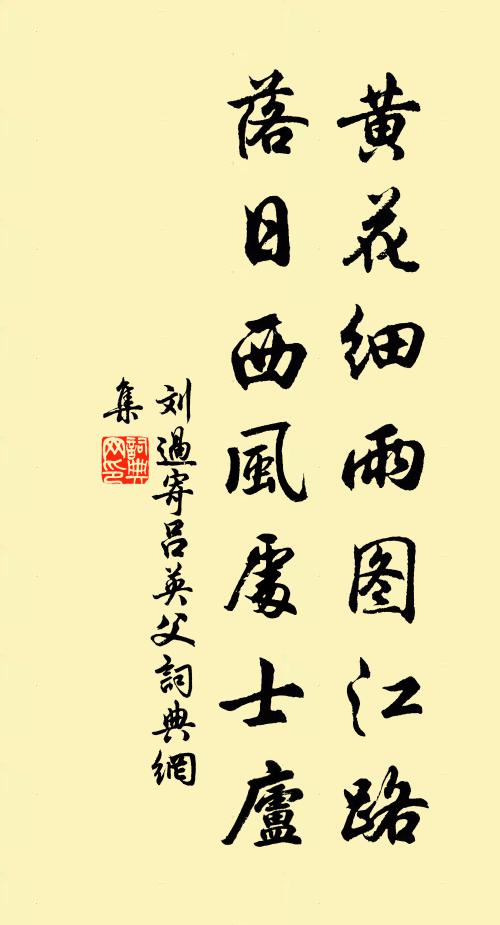 黄花细雨图江路
落日西風處士廬
刘過寄吕英父詞典網
集
詞典网印